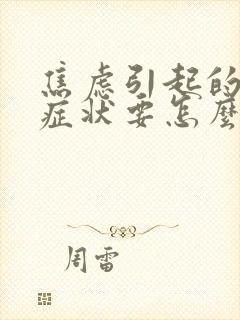 焦虑引起的
症状要怎麽
周雷